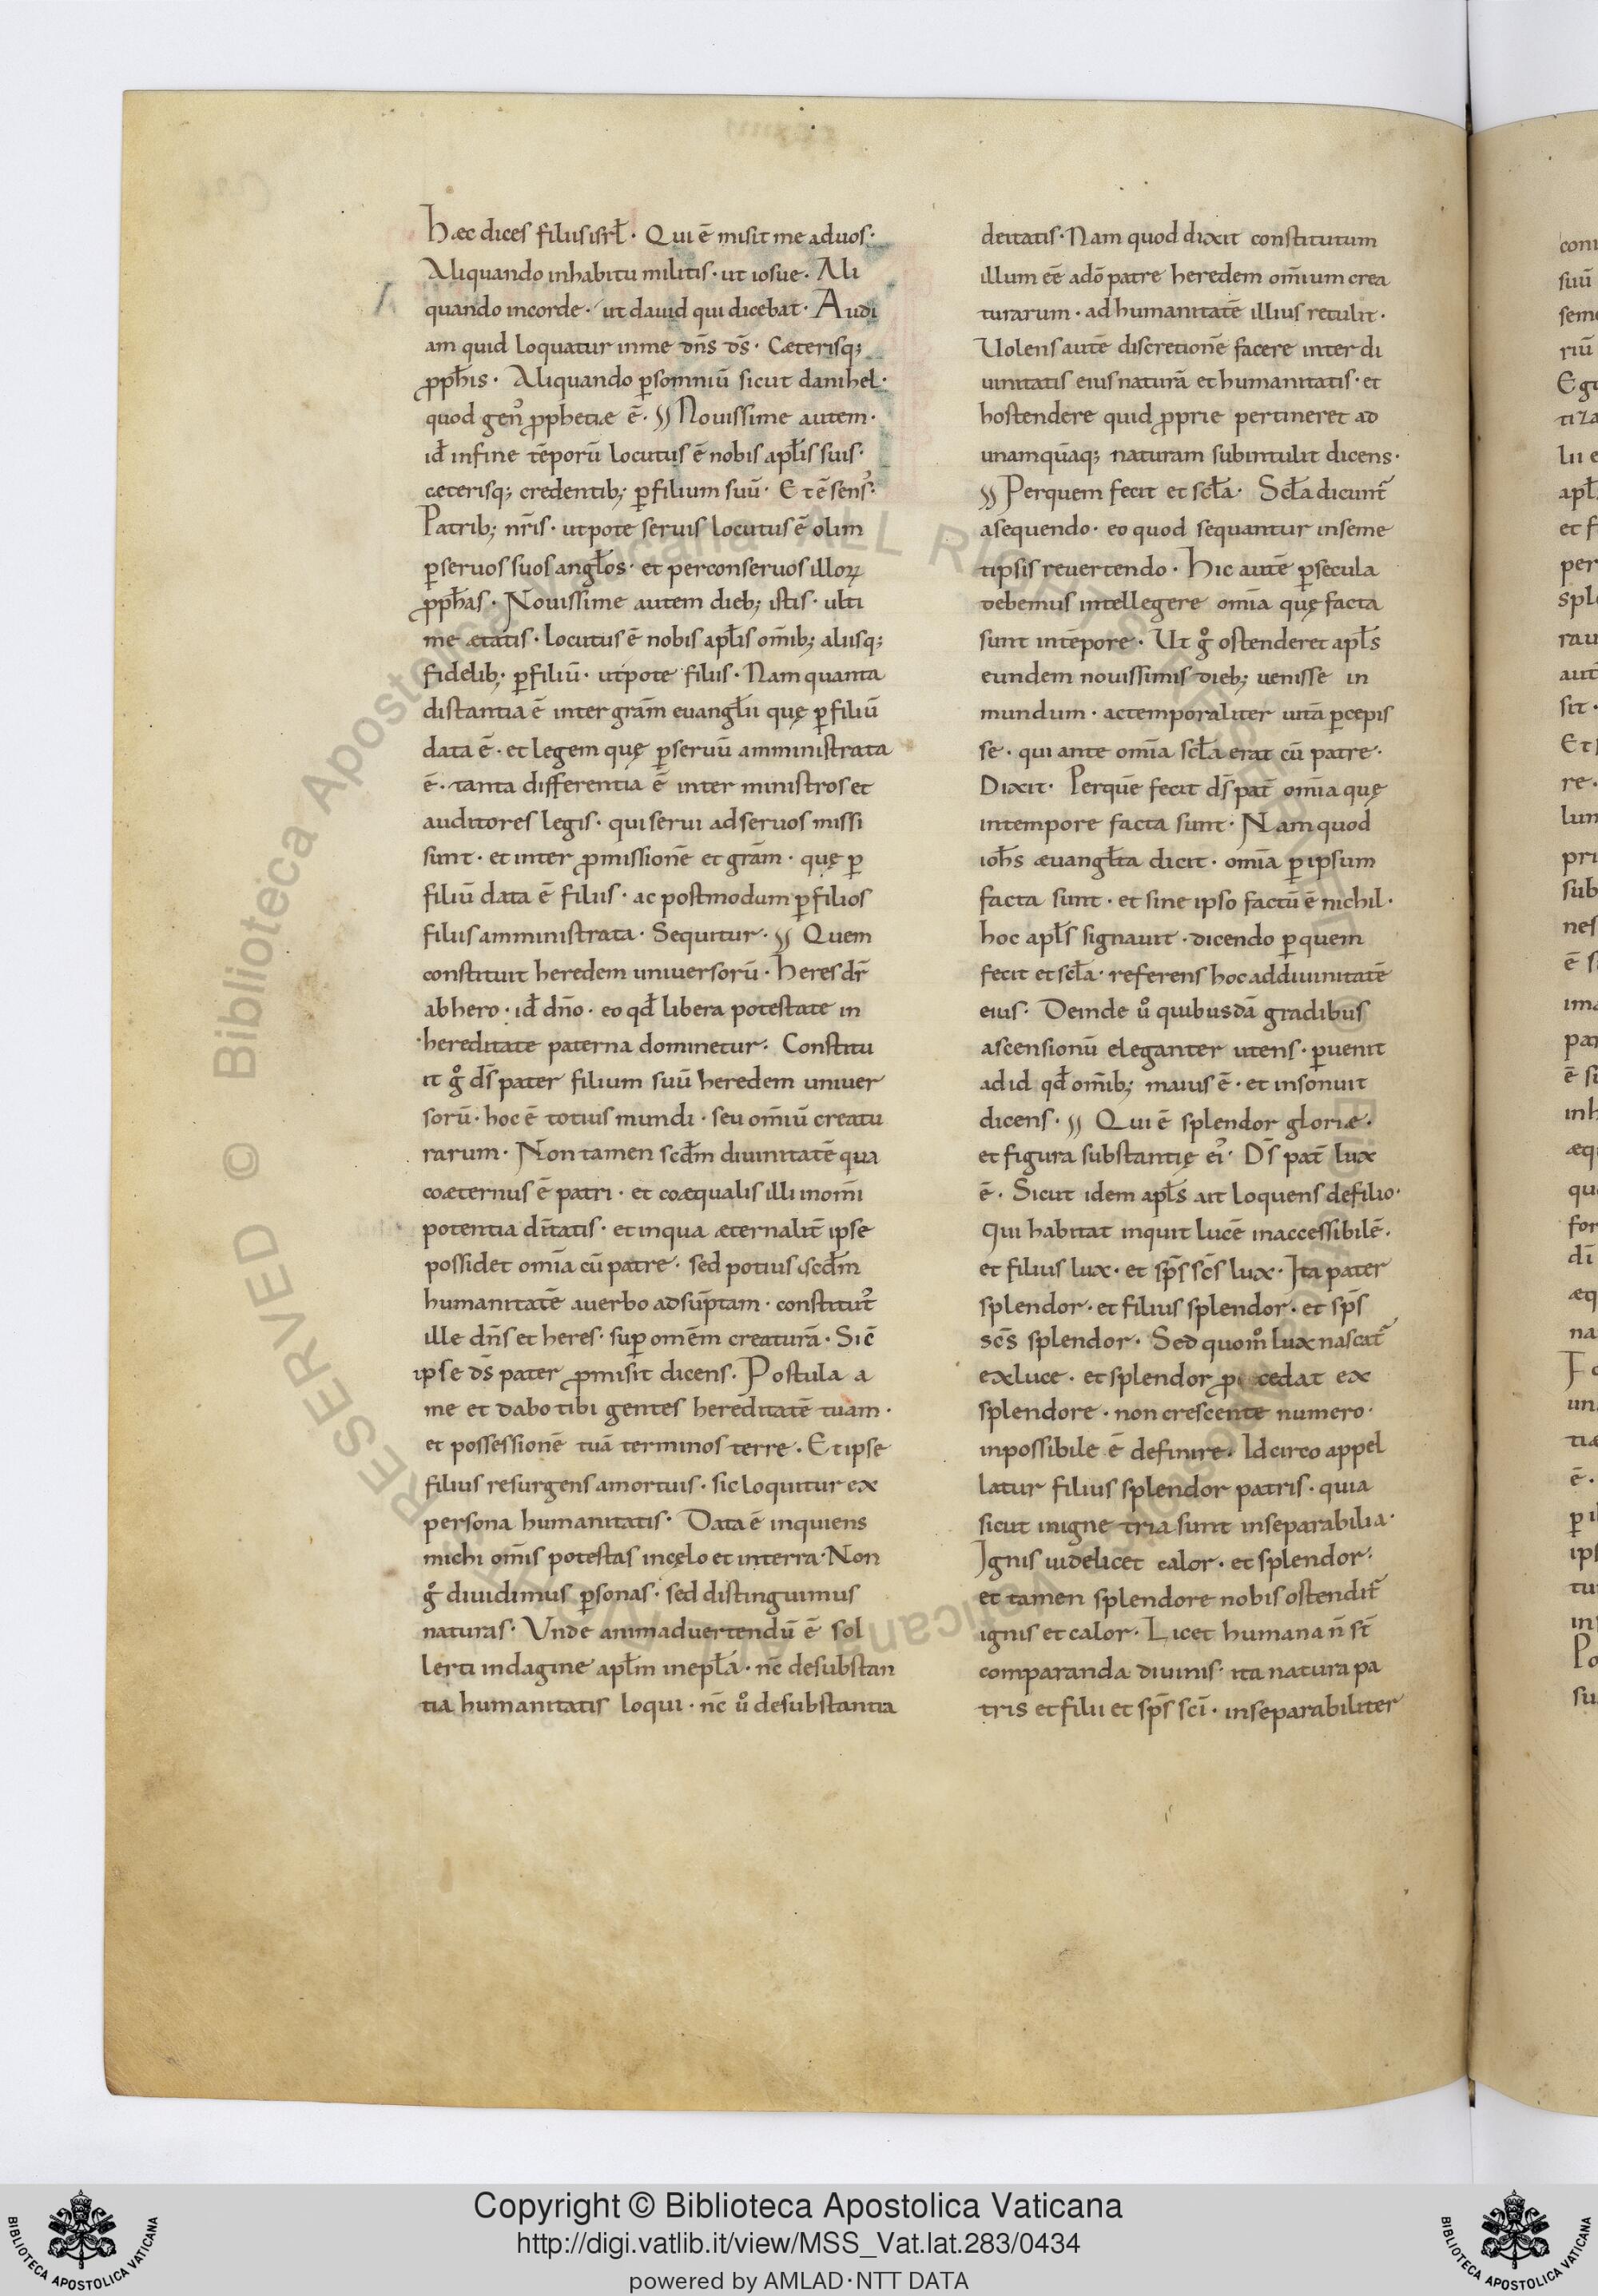 Hæc dices filiis isrƚ · Qui ē misit me ad uos ·
Aliquando in habitu militis · ut iosue · Ali
quando in corde · ut dauid qui dicebat · Audi
am quid loquatur in me dn̄s ds̄ · Cæterisq;
ꝓph̄is · Aliquando ꝑ somniū sicut danihel ·
quod gen᾿ ꝓphetiæ ē · Nouissime autem ·
id̄ in fine tēporū locutus ē nobis apƚis suis ·
ceterisq; credentib; ꝑ filium suū · Et ē sens᾿ ·
Patrib; nr̄is · utpote seruis locutus ē olim
ꝑ seruos suos angƚos · et per conseruos illoꝝ
ꝓph̄as · Nouissime autem dieb; istis · ulti
me ætatis · locutus ē nobis apƚis om̄ib; aliisq;
fidelib; ꝑ filiū · utpote filiis · Nam quanta
distantia ē inter grām euangƚii quę ꝑ filiū
data ē · et legem quę ꝑ seruū amministrata
ē · tanta differentia ē inter ministros et
auditores legis · qui serui ad seruos missi
sunt · et inter ꝓmissionē et grām · quę ꝑ
filiū data ē filiis · ac postmodum ꝑ filios
filiis amministrata · Sequitur · Quem
constituit heredem uniuersorū · Heres dr̄
ab hero · id̄ dn̄o · eo qd̄ libera potestate in
hereditate paterna dominetur · Constitu
it g̊ ds̄ pater filium suū heredem uniuer
sorū · hoc ē totius mundi · seu om̄iū creatu
rarum · Non tamen scd̄m diuinitatē qua
coæternus ē patri · et coæqualis illi in om̄i
potentia dīitatis · et in qua æternalit̄ ipse
possidet om̄ia cū patre · sed potius scd̄m
humanitatē a uerbo adsūptam · constituit᾿
ille dn̄s et heres · suꝑ omēm creaturā · Sic̄
ipse ds̄ pater ꝓmisit dicens · Postula a
me et dabo tibi gentes hereditatē tuam ·
et possessionē tuā terminos terre · Et ipse
filius resurgens a mortuis · sic loquitur ex
persona humanitatis · Data ē inquiens
michi om̄is potestas in cęlo et in terra · Non
g̊ diuidimus ꝑsonas · sed distinguimus
naturas · Vnde animaduertendū ē sol
lerti indagine apƚm in epƚa · nc̄ de substan
tia humanitatis loqui · nc̄ ů de substantia
deitatis · Nam quod dixit constitutum
illum eē a dō patre heredem om̄ium crea
turarum · ad humanitatē illius retulit ·
Uolens autē discretionē facere inter di
uinitatis eius naturā et humanitatis · et
hostendere quid ꝓprie pertineret ad
unamquāq; naturam subintulit dicens ·
Per quem fecit et scƚa · Scƚa dicunt᾿
a sequendo · eo quod sequantur in seme
tipsis reuertendo · Hic autē ꝑ secula
debemus intellegere om̄ia quę facta
sunt in tēpore · Ut g̊ ostenderet apƚs
eundem nouissimis dieb; uenisse in
mundum · ac temporaliter uitā ꝑcepis
se · qui ante om̄ia scƚa erat cū patre ·
Dixit · Per quē fecit ds̄ pat̄ om̄ia quę
in tempore facta sunt · Nam quod
ioh̄s æuangƚta dicit · om̄ia ꝑ ipsum
facta sunt · et sine ipso factū ē nichil ·
hoc apƚs signauit · dicendo ꝑ quem
fecit et scƚa · referens hoc ad diuinitatē
eius · Deinde ů quibusdā gradibus
ascensionū eleganter utens · ꝑuenit
ad id qd̄ om̄ib; maius ē · et insonuit
dicens · Qui ē splendor gloriæ ·
et figura substantię ei᾿ · Ds̄ pat̄ lux
ē · Sicut idem apƚs ait loquens de filio ·
Qui habitat inquit lucē inaccessibilē ·
et filius lux · et sps̄ sc̄s lux · Ita pater
splendor · et filius splendor · et sps̄
sc̄s splendor · Sed quom̊ lux nascat᾿
ex luce · et splendor ꝓcedat ex
splendore · non crescente numero ·
inpossibile ē definire · Idcirco appel
latur filius splendor patris · quia
sicut in igne tria sunt inseparabilia ·
Ignis uidelicet calor · et splendor ·
et tamen splendore nobis ostendit᾿
ignis et calor · Licet humana n̄ st̄
comparanda diuinis · ita natura pa
tris et filii et sps̄ sc̄i · inseparabiliter
Copyright © Biblioteca Apostolica Vaticana
http://digi.vatlib.it/view/MSS_Vat.lat.283/0434
powered by AMLAD·NTT DATA